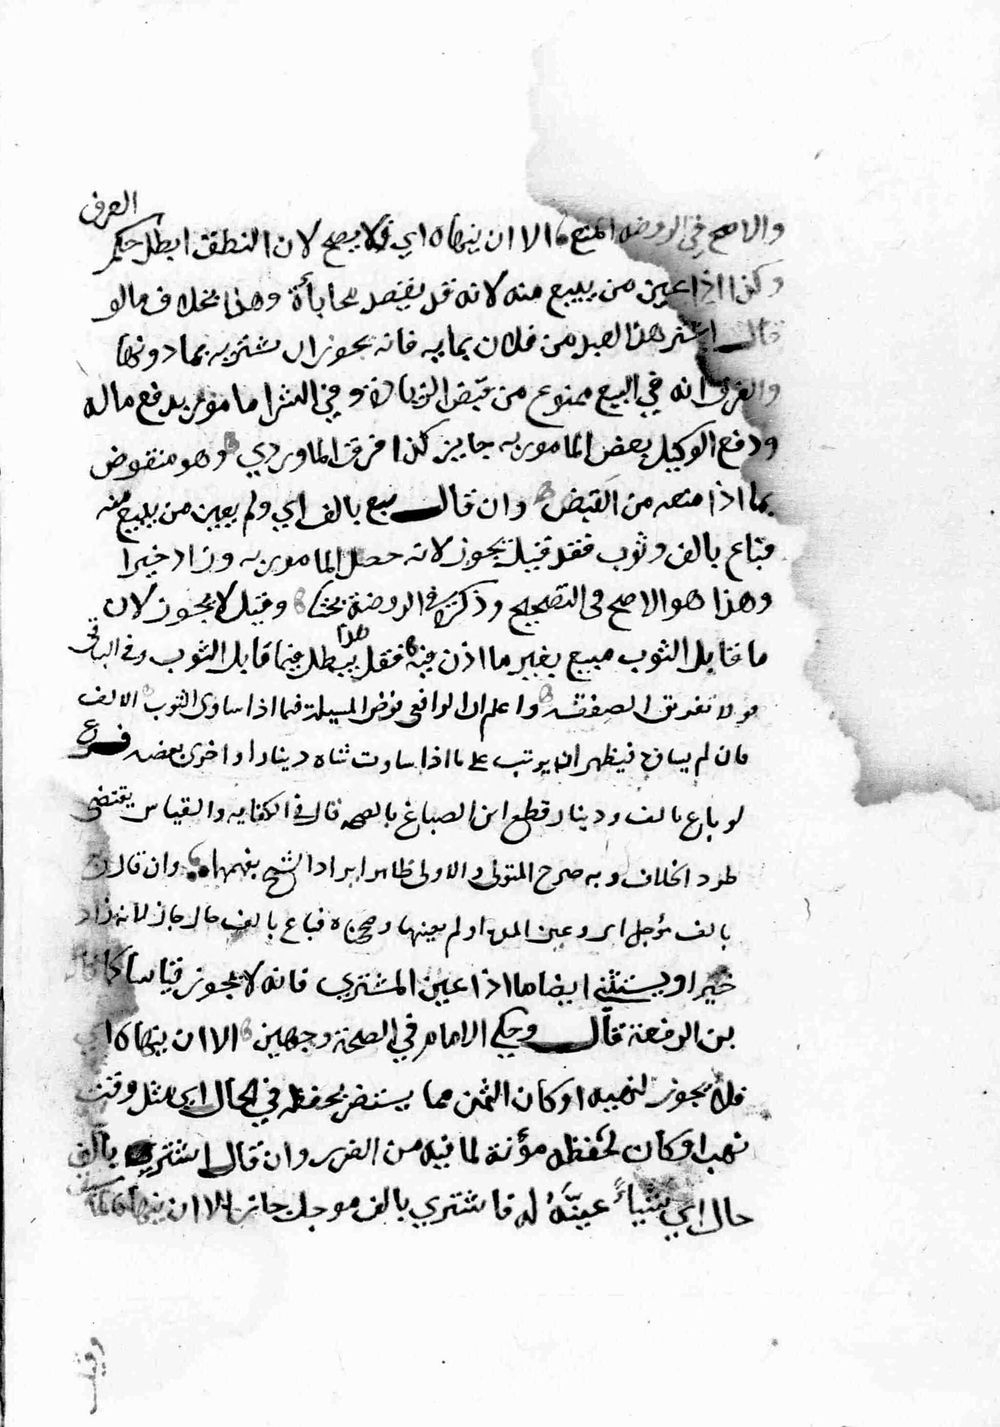 والاصح في الروضه المنع الا ان ينهاه اي فلا يصح لان النطق ابطل حكم العرف
وكذا اذا عين من يبيع منه لانه قد يقصد محاباة وهذا بخلاف مالو
قال اشتر هذا العبد من فلان بمايه فانه يجوز ان يشتريه بما دونها
والفرق انه في البيع ممنوع من قبض الزيادة وفي الشرا مامور بدفع ماله
ودفع الوكيل بعض المامور به جايز كذا فرق الماوردي وهو منقوض
بما اذا منعه من القبض وان قال بع بالف اي ولم يعين من يبيع منه
فباع بالف وثوب فقد قيل يجوز لانه حصل المامور به وزاد خيرا
وهذا هو الاصح في التصحيح وذكره في الروضة بحثا وقيل لا يجوز لان
ما قابل الثوب مبيع بغير ما اذن فيه فعلى هذا يبطل فيما قابل الثوب وفي الباقي
قولا تفريق الصفقه واعلم ان الرافعي فرض المسيلة فيما اذا ساوى الثوب الالف
فان لم يساوه فيظهر ان يرتب على ما اذا ساوت شاه دينارا واخرى بعضه فرع
لو باع بالف ودينار قطع ابن الصباغ بالصحه قال في الكفايه والقياس يقتضي
طرد الخلاف وبه صرح المتولي والاولى ظاهر ايراد الشيخ بفهمها وان قال بع
بالف مؤجل اي وعين المدة او لم يعينها وصححناه فباع بالف حال جاز لانه زاد
خيرا ويستثنى ايضا ما اذا عين المشتري فانه لا يجوز قياسا كما قال
بن الرفعة قال وحكى الامام في الصحة وجهين الا ان ينهاه اي
فلا يجوز لنهيه او كان الثمن مما يستضر بحفظه في الحال اي مثل وقت
نهب او كان لحفظه مؤنة لما فيه من الضرر وان قال اشتري بالف
حال اي شياءً عينّه له فاشتري بالف موجل جاز الا ان ينهاه
وقيل